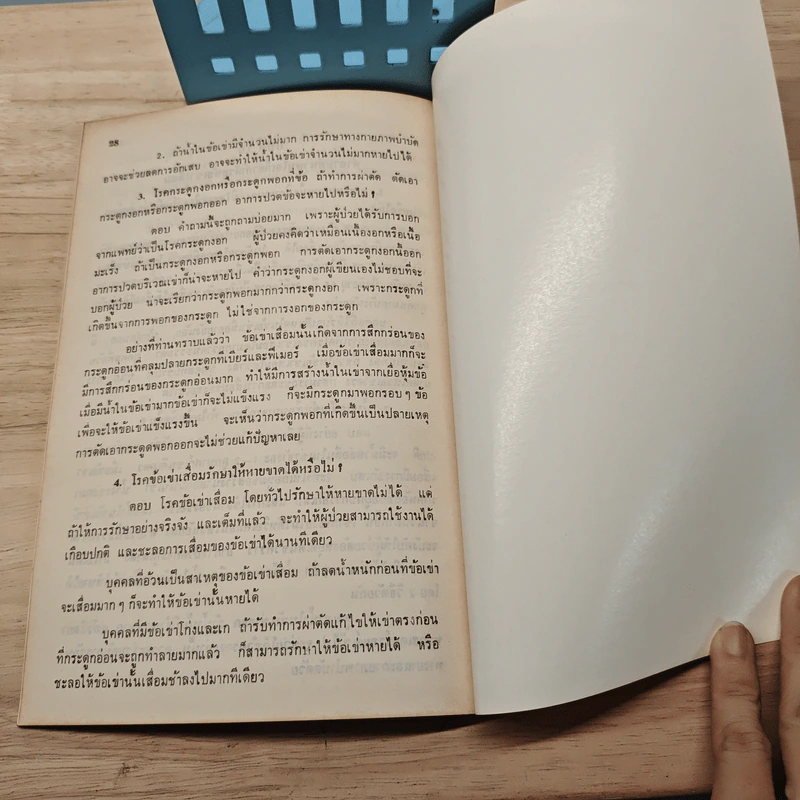 28
2. ถ้าน้ำในข้อเข่ามีจำนวนไม่มาก การรักษาทางกายภาพบำบัด
อาจจะช่วยลดการอักเสบ อาจจะทำให้น้ำในข้อเข่าจำนวนไม่มากหายไปได้
3. โรคกระดูกงอกหรือกระดูกพอกที่ข้อ ถ้าทำการผ่าตัด ตัดเอา
กระดูกงอกหรือกระดูกพอกออก อาการปวดข้อจะหายไปหรือไม่ ?
ตอบ คำถามนี้จะถูกถามบ่อยมาก เพราะผู้ป่วยได้รับการบอก
จากแพทย์ว่าเป็นโรคกระดูกงอก ผู้ป่วยคงคิดว่าเหมือนเนื้องอกหรือเนื้อ
มะเร็ง ถ้าเป็นกระดูกงอกหรือกระดูกพอก การตัดเอากระดูกงอกนี้ออก
อาการปวดบริเวณเข่าก็น่าจะหายไป คำว่ากระดูกงอกผู้เขียนเองไม่ชอบที่จะ
บอกผู้ป่วย น่าจะเรียกว่ากระดูกพอกมากกว่ากระดูกงอก เพราะกระดูกที่
เกิดขึ้นจากการพอกของกระดูก ไม่ใช่จากการงอกของกระดูก
อย่างที่ท่านทราบแล้วว่า ข้อเข่าเสื่อมนั้นเกิดจากการสึกกร่อนของ
กระดูกอ่อนที่คลุมปลายกระดูกทีเบียร์และฟีเมอร์ เมื่อข้อเข่าเสื่อมมากก็จะ
มีการสึกกร่อนของกระดูกอ่อนมาก ทำให้มีการสร้างน้ำในเข่าจากเยื่อหุ้มข้อ
เมื่อมีน้ำในข้อเข่ามากข้อเข่าก็จะไม่แข็งแรง ก็จะมีกระดูกมาพอกรอบ ๆ ข้อ
เพื่อจะให้ข้อเข่าแข็งแรงขึ้น จะเห็นว่ากระดูกพอกที่เกิดขึ้นเป็นปลายเหตุ
การตัดเอากระดูดพอกออกจะไม่ช่วยแก้ปัญหาเลย
4. โรคข้อเข่าเสื่อมรักษาให้หายขาดได้หรือไม่ ?
ตอบ โรคข้อเข่าเสื่อม โดยทั่วไปรักษาให้หายขาดไม่ได้ แต่
ถ้าให้การรักษาอย่างจริงจัง และเต็มที่แล้ว จะทำให้ผู้ป่วยสามารถใช้งานได้
เกือบปกติ และชะลอการเสื่อมของข้อเข่าได้นานทีเดียว
บุคคลที่อ้วนเป็นสาเหตุของข้อเข่าเสื่อม ถ้าลดน้ำหนักก่อนที่ข้อเข่า
จะเสื่อมมาก ๆ ก็จะทำให้ข้อเข่านั้นหายได้
บุคคลที่มีข้อเข่าโก่งและเก ถ้ารับทำการผ่าตัดแก้ไขให้เข่าตรงก่อน
ที่กระดูกอ่อนจะถูกทำลายมากแล้ว ก็สามารถรักษาให้ข้อเข่าหายได้ หรือ
ชะลอให้ข้อเข่านั้นเสื่อมช้าลงไปมากทีเดียว